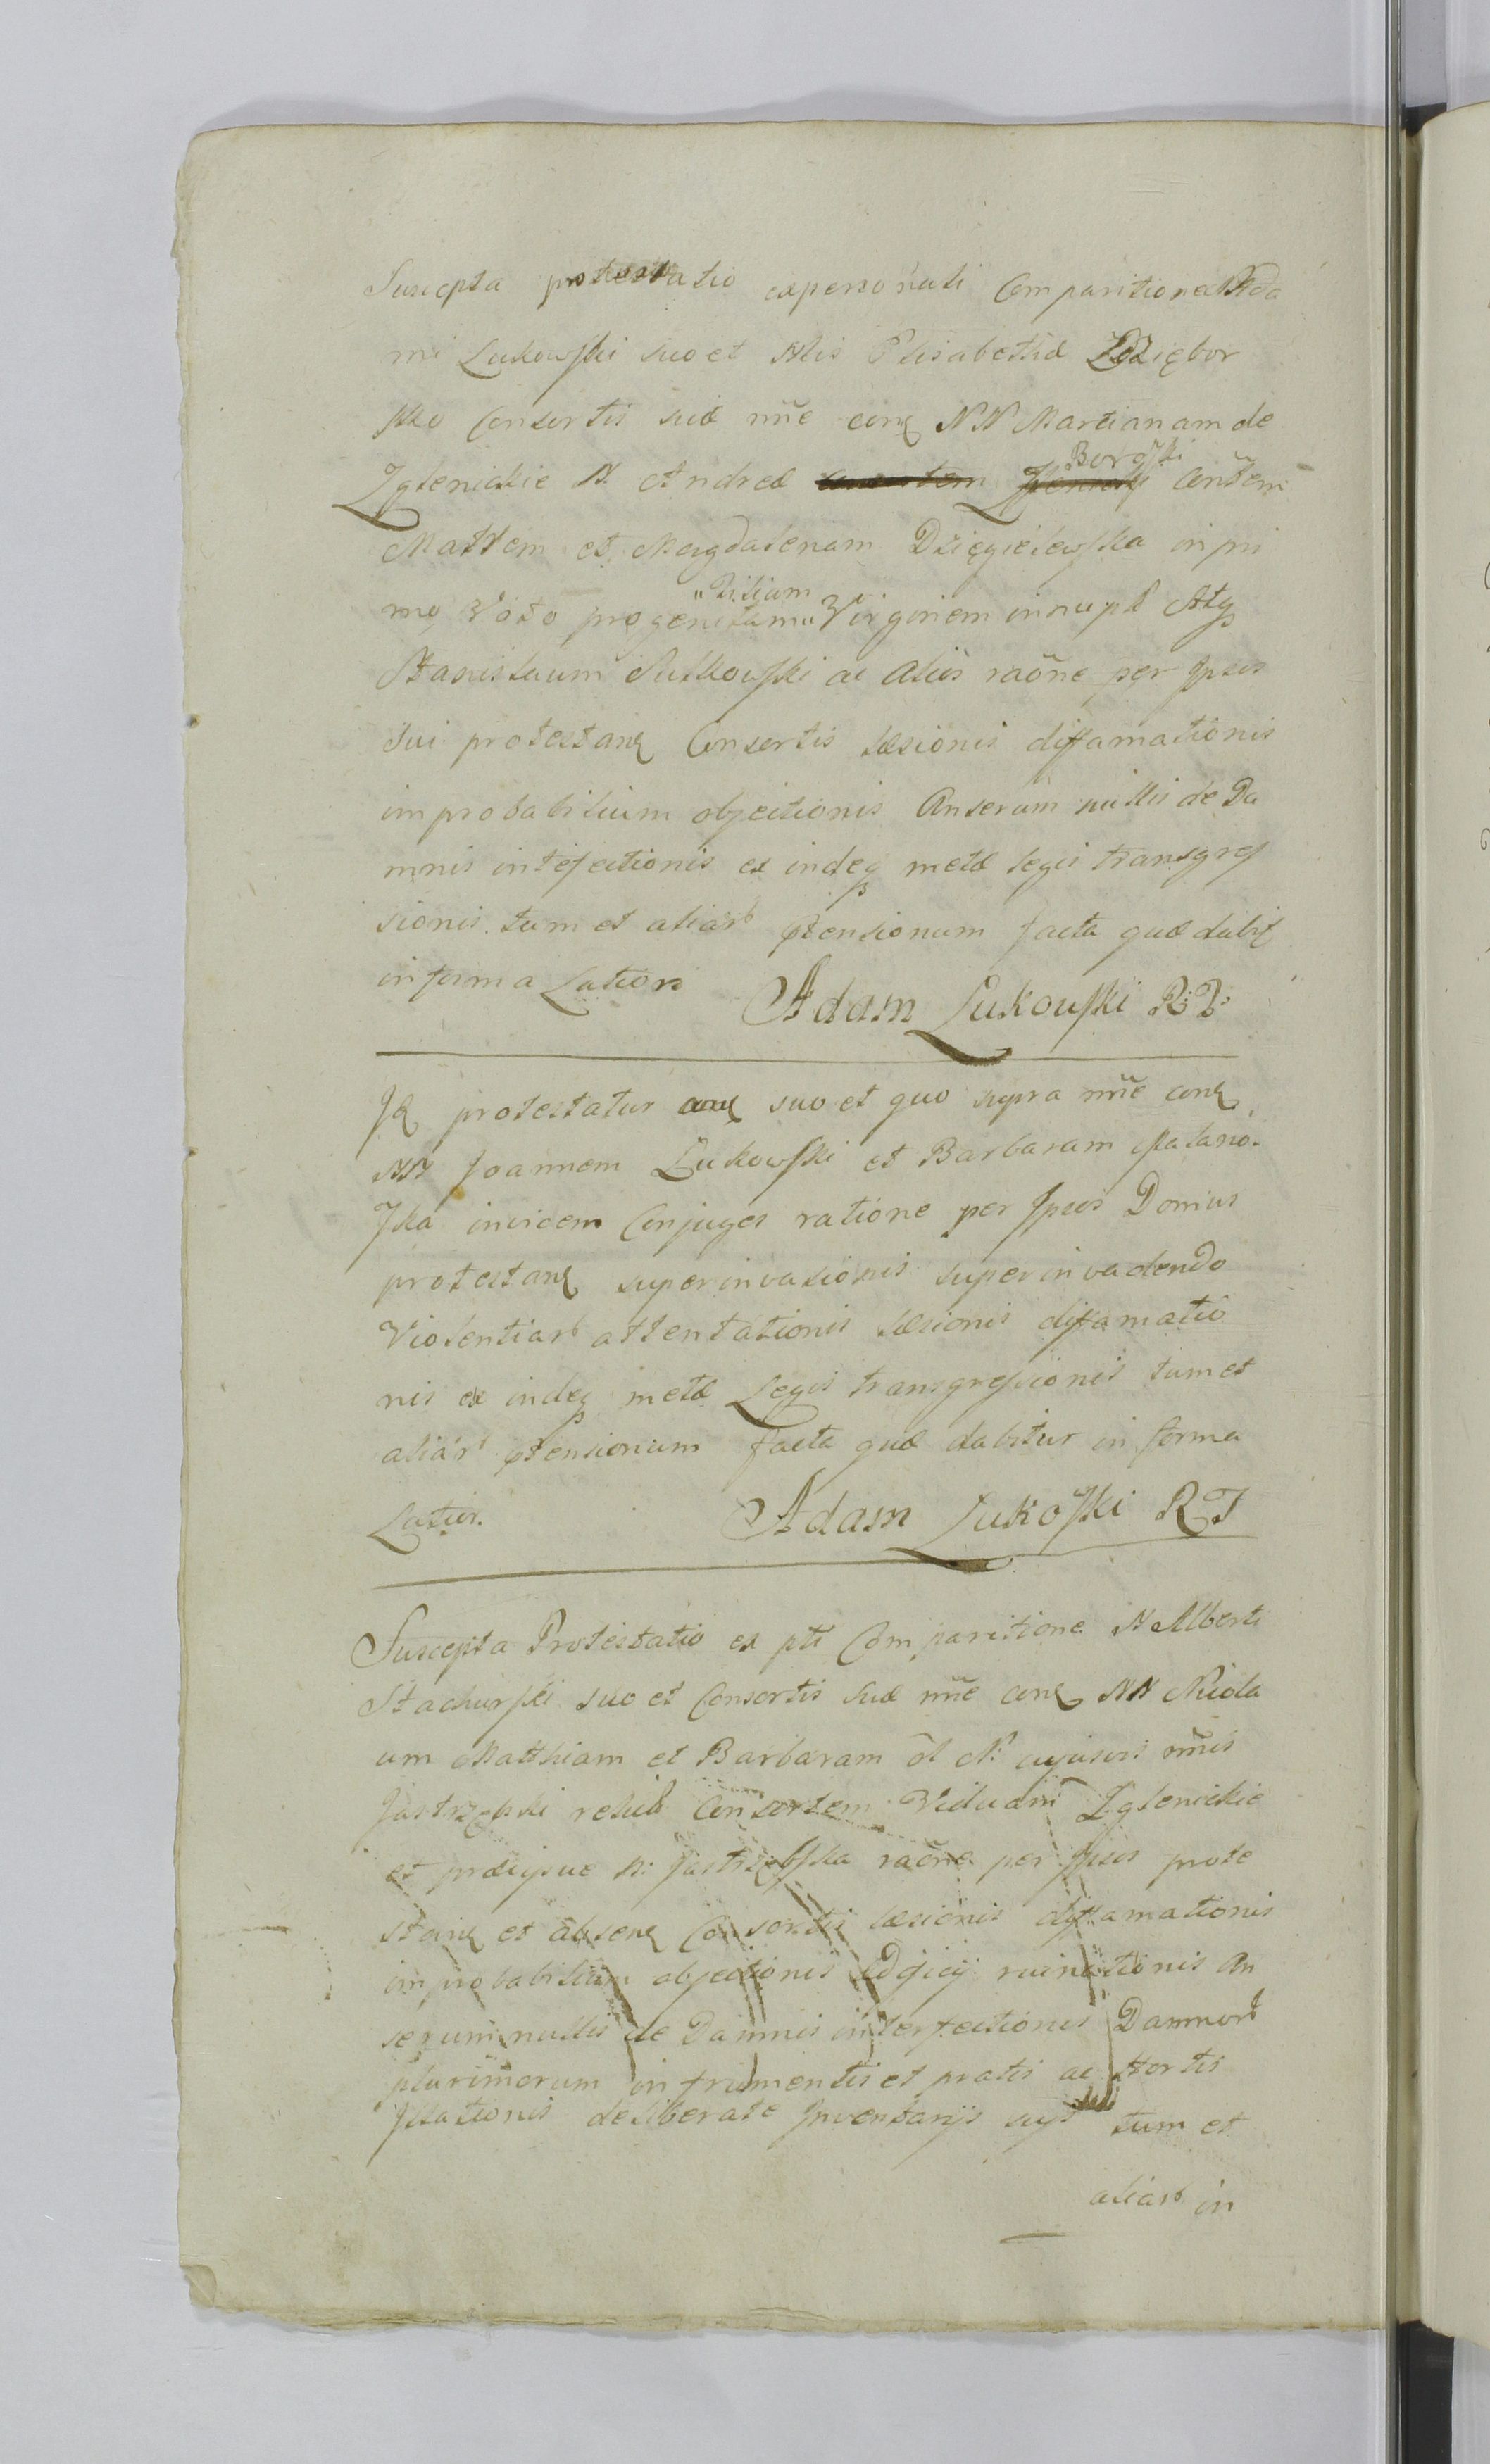 Suscepta protestatio ex personali Comparitione N Ada
mi Lukowski suo et Nlis Elisabethæ Zdziębor
ska Consortis suæ nn̄e conq NN Marcianam de
Zglenickie N. Andreæ consortem Boroski Conštem
Mattem et Magdalenam Dzięgielewska in pri
mo Voto progenitam "Filiam" Virginem innupt Atq
Stanislaum Rutkowski ac aliis raōne per Ipsos
sui protestanq Consortis læsionis diffamationis
improbabilium objectionis Anserum nullis de Da
mnis intefectionis ex indeq metæ legis transgres
sionis tum et aliar ptensionum facta quæ dabiq
in forma Latiori Adam Lukowski R: P:
Iq protestatur suo et quo supra nn̄e conq
NN Joannem Lukowski et Barbaram Malano-
ska invicem Conjuges ratione per Ipsos Domus
protestanq superinvasionis superinvadendo
Violentiar attentationis læsionis diffamatio
nis ex indeq metæ Legis transgressionis tum et
aliar ptensionum facta quæ dabitur in forma
Latior. Adam Lukoski R P
Suscepta Protestatio ex pti Comparitione N Alberti
Stachurski suo et Consortis suæ nn̄e conq NN Nicola
um Matthiam et Barbaram ol N: cujusvis nn̄is
Jastrzębski relict Consortem Viduam Zglenickie
et præcipue N: Jastrzębska raōne per Ipsos prote
stanq et absenq Consortis læsionis diffamationis
improbabilium objectionis Ædificij ruinationis An
serum nullis de Damnis interfectionis Damnor
plurimorum in frumentis et pratis ac Hortis
Illationis deliberate Inventarijs suis tum et
aliar in